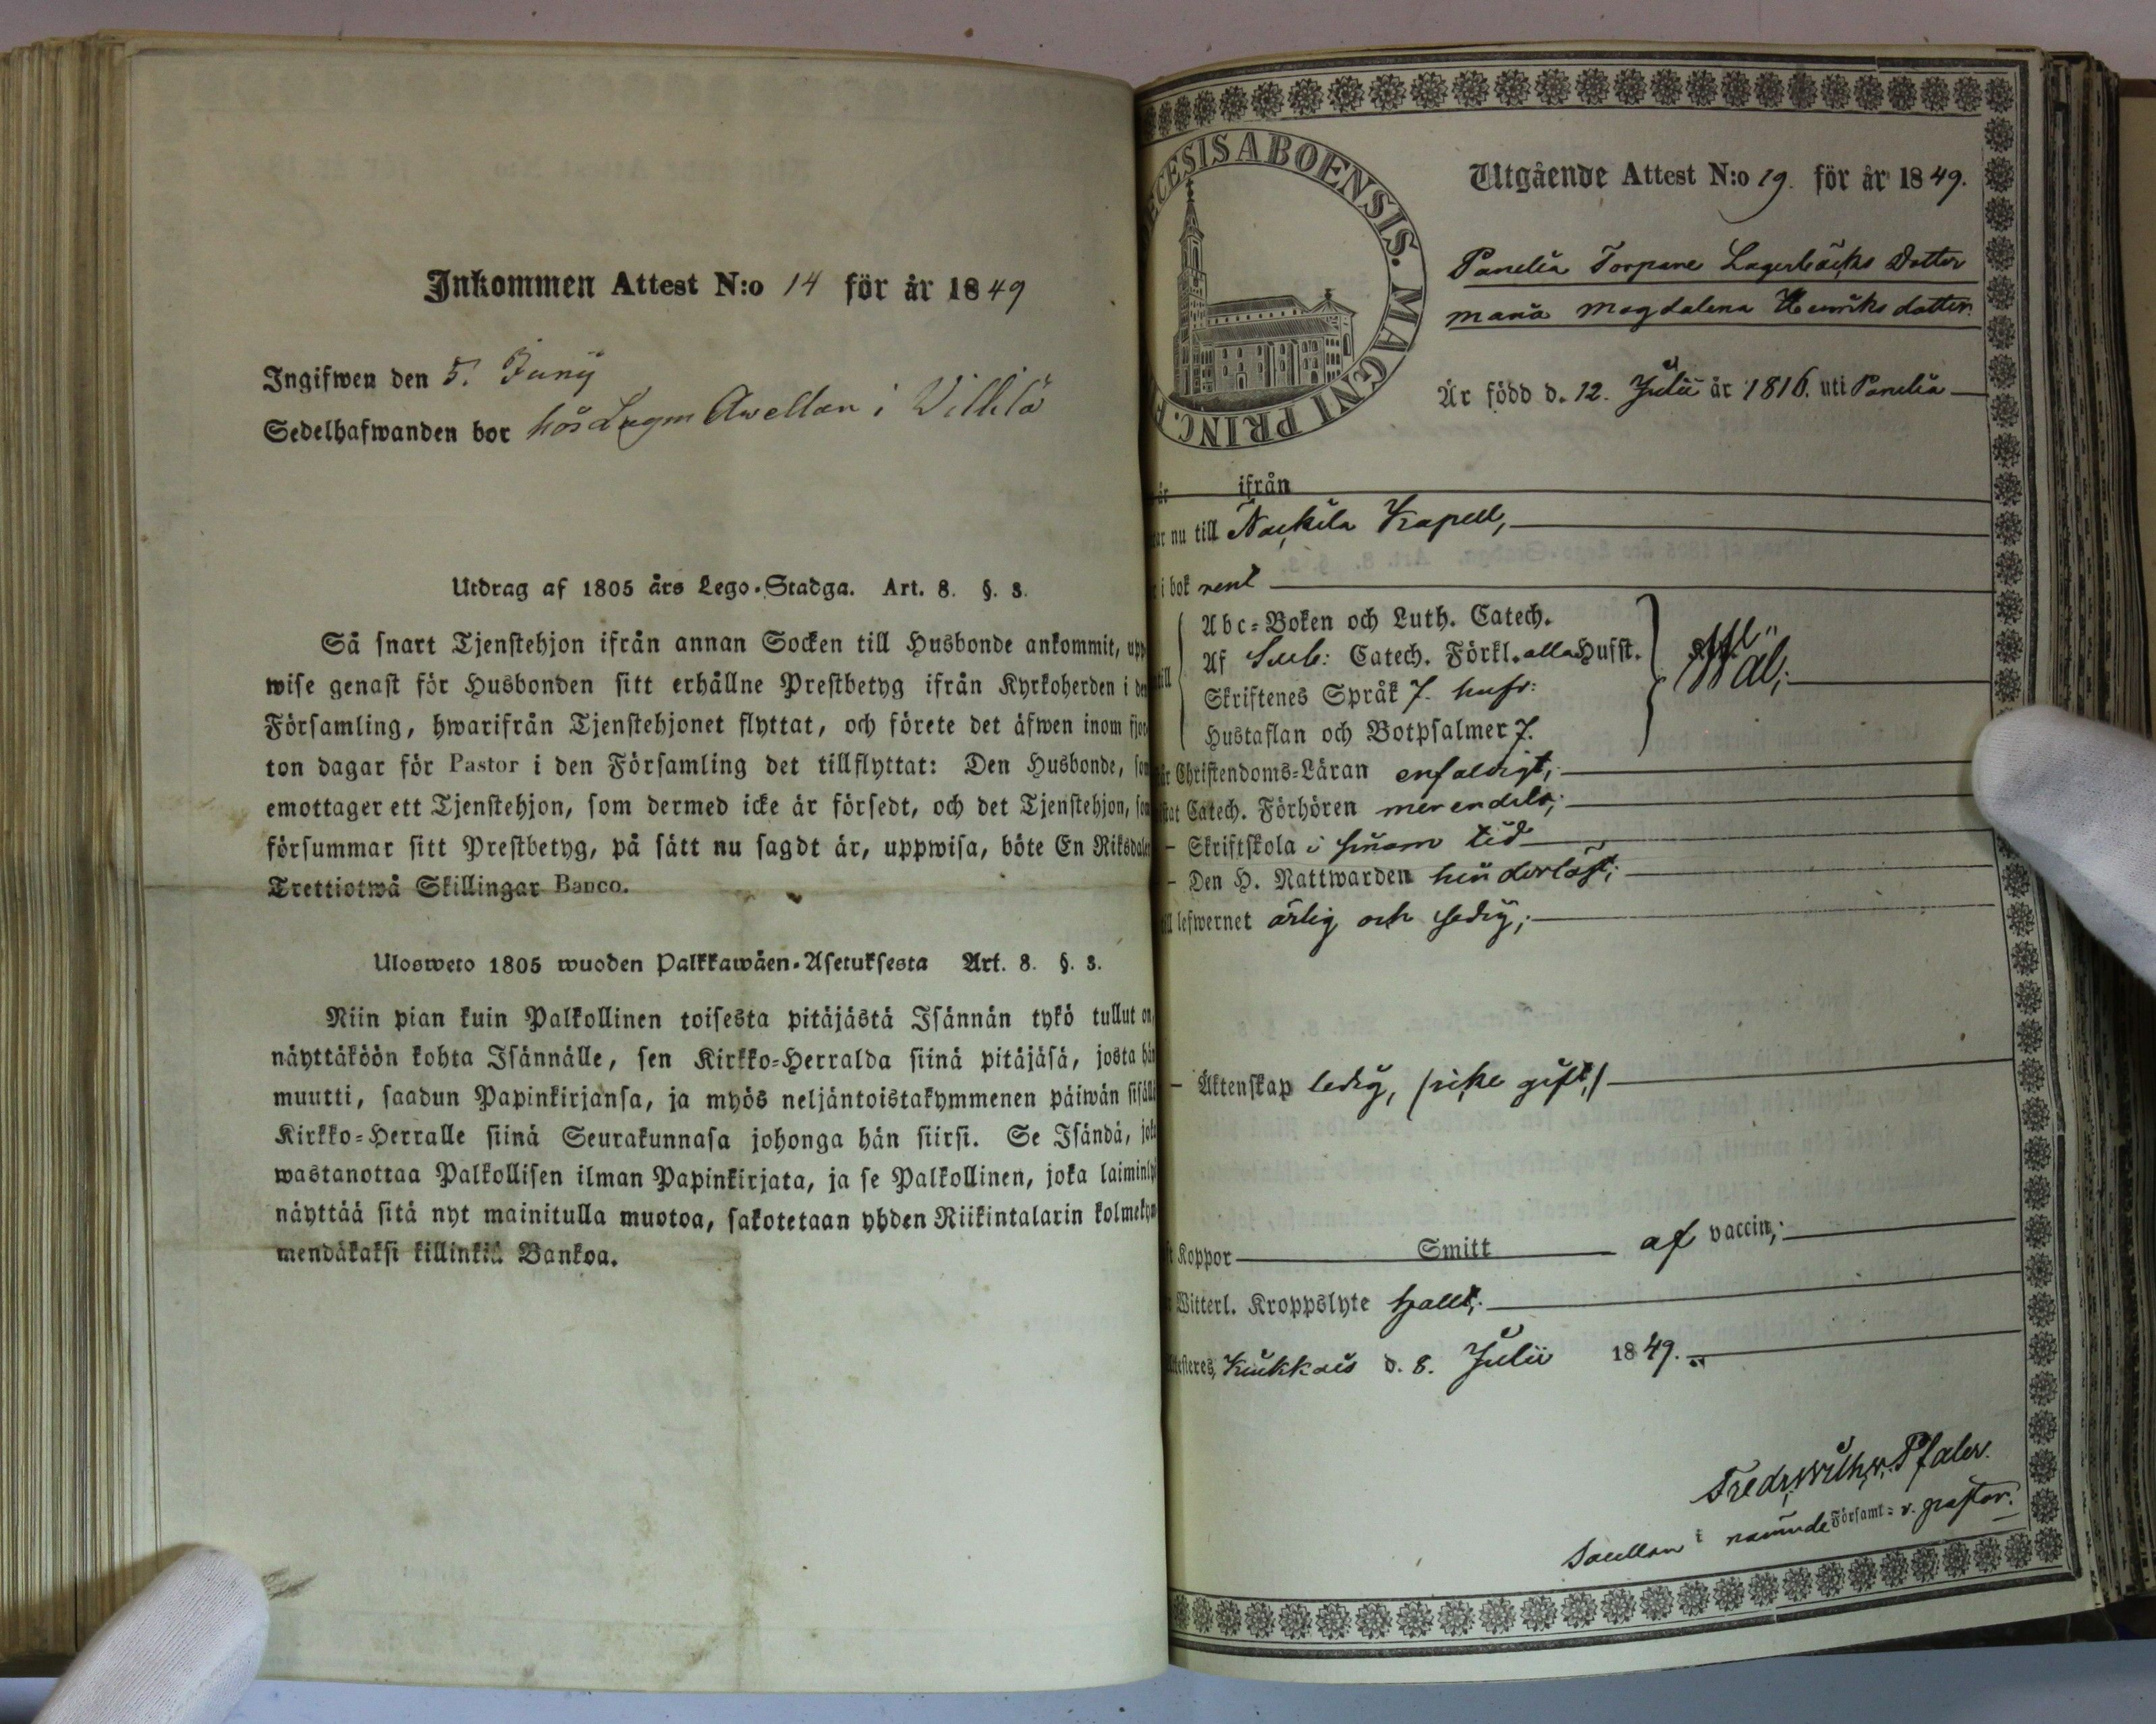 Inkommen Attest N:o 14 för år 1849
Ingifwen den 5. Juny
Sedelhafwanden bor hos Lagm Awellan i Villilä
Utdrag af 1805 års Lego-Stadga. Art. 8. §. 3.
Så snart Tjenstehjon ifrån annan Socken till Husbonde ankommit, upp
wise genast för Husbonden sitt erhållne Prestbetyg ifrån Kyrkoherden i den
Församling, hwarifrån Tjenstehjonet flyttat, och förete det äfwen inom fjor
ton dagar för Pastor i den Församling det tillflyttat: Den Husbonde, som
emottager ett Tjenstehjon, som dermed icke är försedt, och det Tjenstehjon, som
försummar sitt Prestbetyg, på sätt nu sagdt är, uppwisa, böte En Riksdaler
Trettiotwå Skillingar Banco.
Uloswet​o 1805 wuoden Palkkawäen-Asetuksesta Art. 8. §. 3.
Niin pian kuin Palkollinen toisesta pitäjästä Isännän tykö tullut on,
näyttäköön kohta Isännälle, sen Kirkko-Herralda siinä pitäjäsä, josta hän
muutti, saadun Papinkirjansa, ja myös neljäntoistakymmenen päiwän sisällä
Kirkko-Herralle siinä Seurakunnasa johonga hän siirsi. Se Isändä, joka
wastanottaa Palkollisen ilman Papinkirjata, ja se Palkollinen, joka laiminly
näyttää sitä nyt mainitulla muotoa, sakotetaan yhden Riikintalarin kolmekym
mendäkaksi killinkiä Bankoa.
CESIS ABOENSIS. MAGNI PRINC. F
Utgående Attest N:o 19. för år 1849.
Panelia Torpare Lagerbäcks Dotter
Maria Magdalena Henriksdotter.
Är född d. 12. Julii år 1816. uti Panelia
år ifrån
er nu till Nackila Kapell,
i bok rent
Abc-Boken och Luth. Catech.
Af Sveb: Catech. Förkl. alla Hufst.
till Skriftenes Språk 7. hufs:
Hustaflan och Botpsalmer 7.
Wäl;
år Christendoms-Läran enfaldigt;
tat Catech. Förhören merendels;
- Skriftskola i sinom tid
- Den H. Nattwarden hinderlöst;
ill lefwernet ärlig och sedig;
- Äktenskap ledig, /icke gift,/
ft Koppor Smitt af vaccin;
r Witterl. Kroppslyte halt;
ttesteres, Kiukkais d. 8. Julii 1849.
Fredr. Wilh. v. Pfaler.
Sacellan i nämnde Församl: v. pastor.